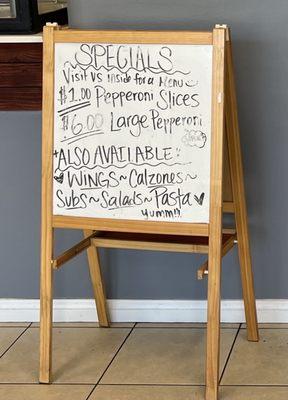 ~SPECIALS~
Visit us inside for a Menu
$1.00 Pepperoni Slices
$6.00 Large Pepperoni
*Also Available:
WINGS~Calzones~
Subs~Salads~Pasta
yumm!!